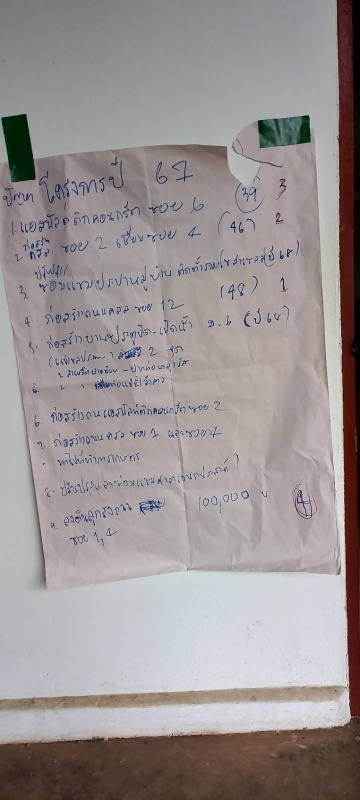 ปัญหา โครงการปี 67
1. แอสฟัลติกคอนกรีต ซอย 6 (39) 3
2. ก่อสร้าง คสล. ซอย 2 เชื่อมซอย 4 (46) 2
3. ซ่อมแซมประปาหมู่บ้าน ติดตั้งระบบโซล่าเซลล์ (ปี 68)
4. ก่อสร้างถนน คสล ซอย 12 (48) 1
5. ก่อสร้างบานประตูปิด-เปิดน้ำ ม.6 (ปี 68)
2 จุด
6. ก่อสร้างถนนแอสฟัลท์ติกคอนกรีต ซอย 2
7. ก่อสร้างถนน คสล ซอย 1 และซอย 4
8. ปรับปรุงและซ่อมแซมศาลาอเนกประสงค์
9. ลงหินลูกรังถนน 100,000 บ 4
ซอย 1, 4